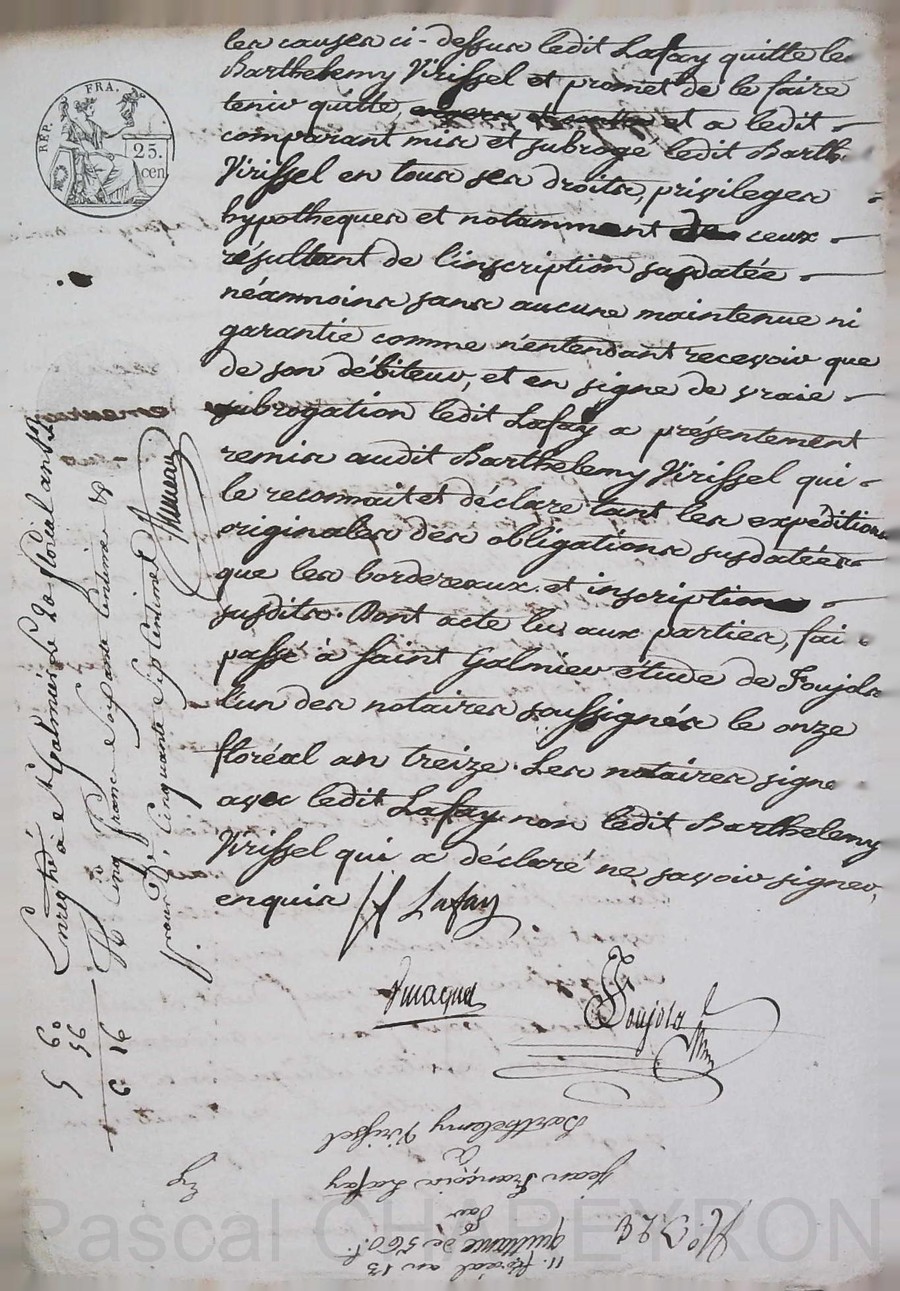 les causes ci-dessus ledit Lafay quitte le
Barthelemy Virissel et promet de le faire
tenir quitte, et a ledit
comparant mis et subrogé ledit Barth.
Virissel en tous ses droits, privileges
hypotheques et notamment ceux
résultant de l'inscription susdatée
néanmoins sans aucune maintenue ni
garantie comme n'entendant recevoir que
de son débiteur, et en signe de vraie
subrogation ledit Lafay a présentement
remis audit Barthelemy Virissel qui
le reconnait et déclare tant les expéditions
originales des obligations susdatées
que les bordereaux et inscriptions
susdits. Dont acte lu aux parties, fai
passé à Saint Galmier étude de Foujols
l'un des notaires soussignés le onze
floréal an treize. Les notaires signe
avec ledit Lafay non ledit Barthelemy
Virissel qui a déclaré ne savoir signer,
enquis
Lafay
Foujols
RÉP. FRA.
25.
cen.
Enregistré à St Galmier le 20 floréal an 13
cinq francs soixante centimes &
pour Dme cinquante six centimes
5 60
56
6 16
No 323
11. floréal an 13
quittance de 560 f.
par
Jean François Lafay
à
Barthelemy Virissel
Pascal CHAPEYRON